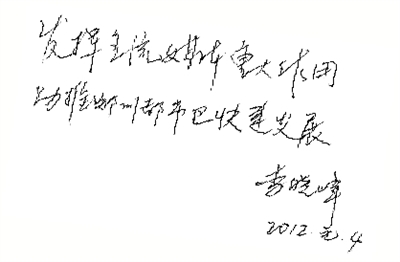 发挥主流媒体重大作用
助推郑州都市区快速发展
李晓峰
2012.元.4